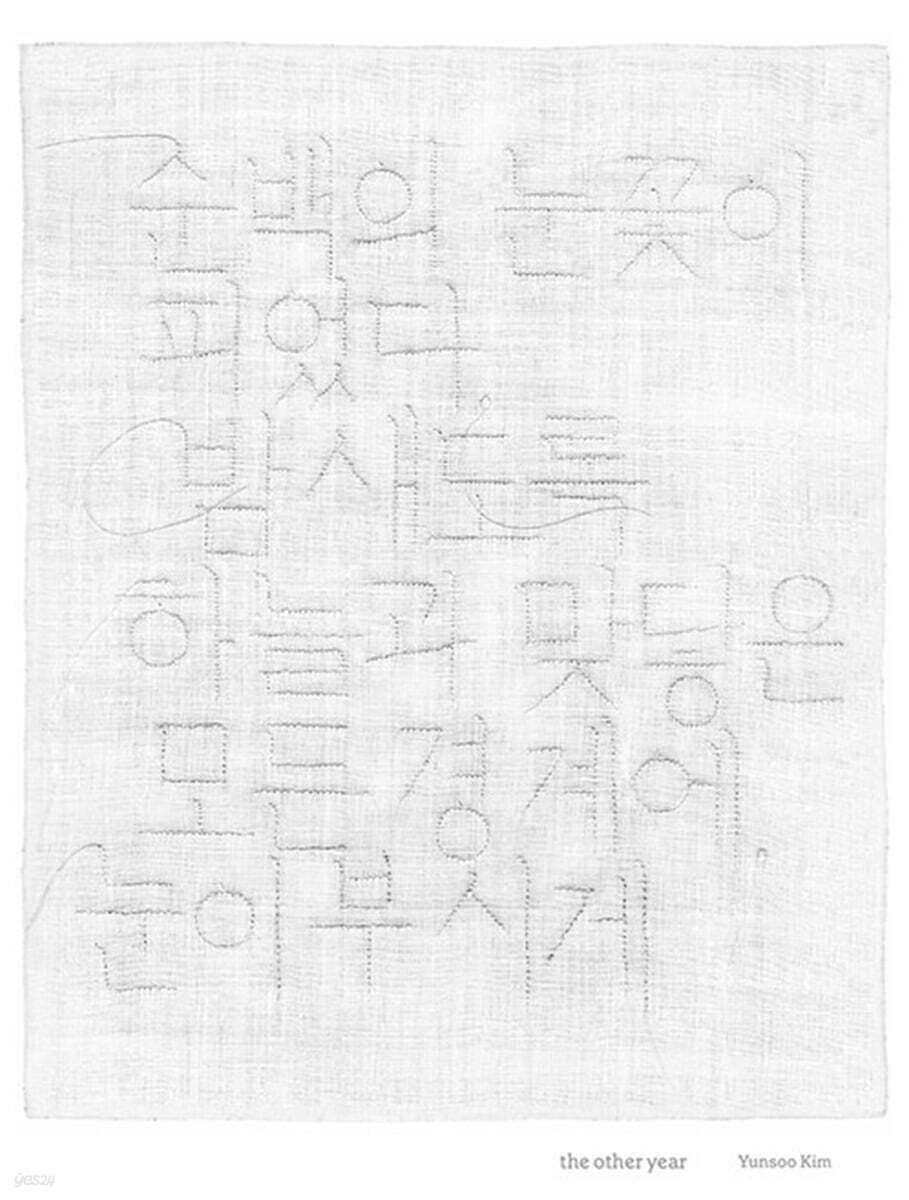 순백의 눈꽃이
피었다
밤새도록
하늘과 맞닿은
모든 경계에
눈이 부시게
the other year Yunsoo Kim
yes24